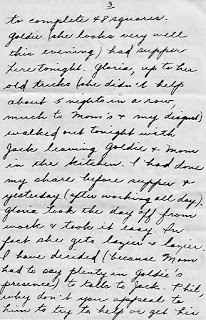 3
to complete 48 squares.
Goldie (she looks very well
this evening) had supper
here tonight. Gloria, up to her
old tricks (she didn't help
about 5 nights in a row,
much to Mom's & my disgust)
walked out tonight with
Jack leaving Goldie & Mom
in the kitchen. I had done
my share before supper &
yesterday (after working all day).
Gloria took the day off from
work & took it easy. In
fact she gets lazier & lazier.
I have decided (because Mom
had to say plenty in Goldie's
presence) to talk to Jack. Phil,
why don't you appeal to
him to try to help or get his